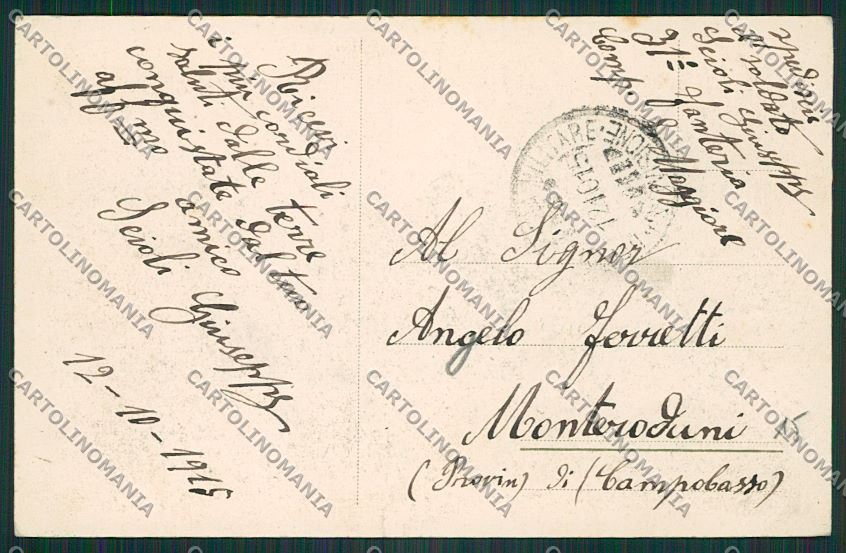 Ricevi
i più cordiali
saluti dalle terre
conquistate dal tuo
aff mo amico
Scioli Giuseppe
12-10-1915
spedisce
il soldato
Scioli Giuseppe
31º Fanteria
Comp. Maggiore
12.10.15
Al Signor
Angelo Ferretti
Monteroduni
(Provin) di (Campobasso)
CARTOLINOMANIA